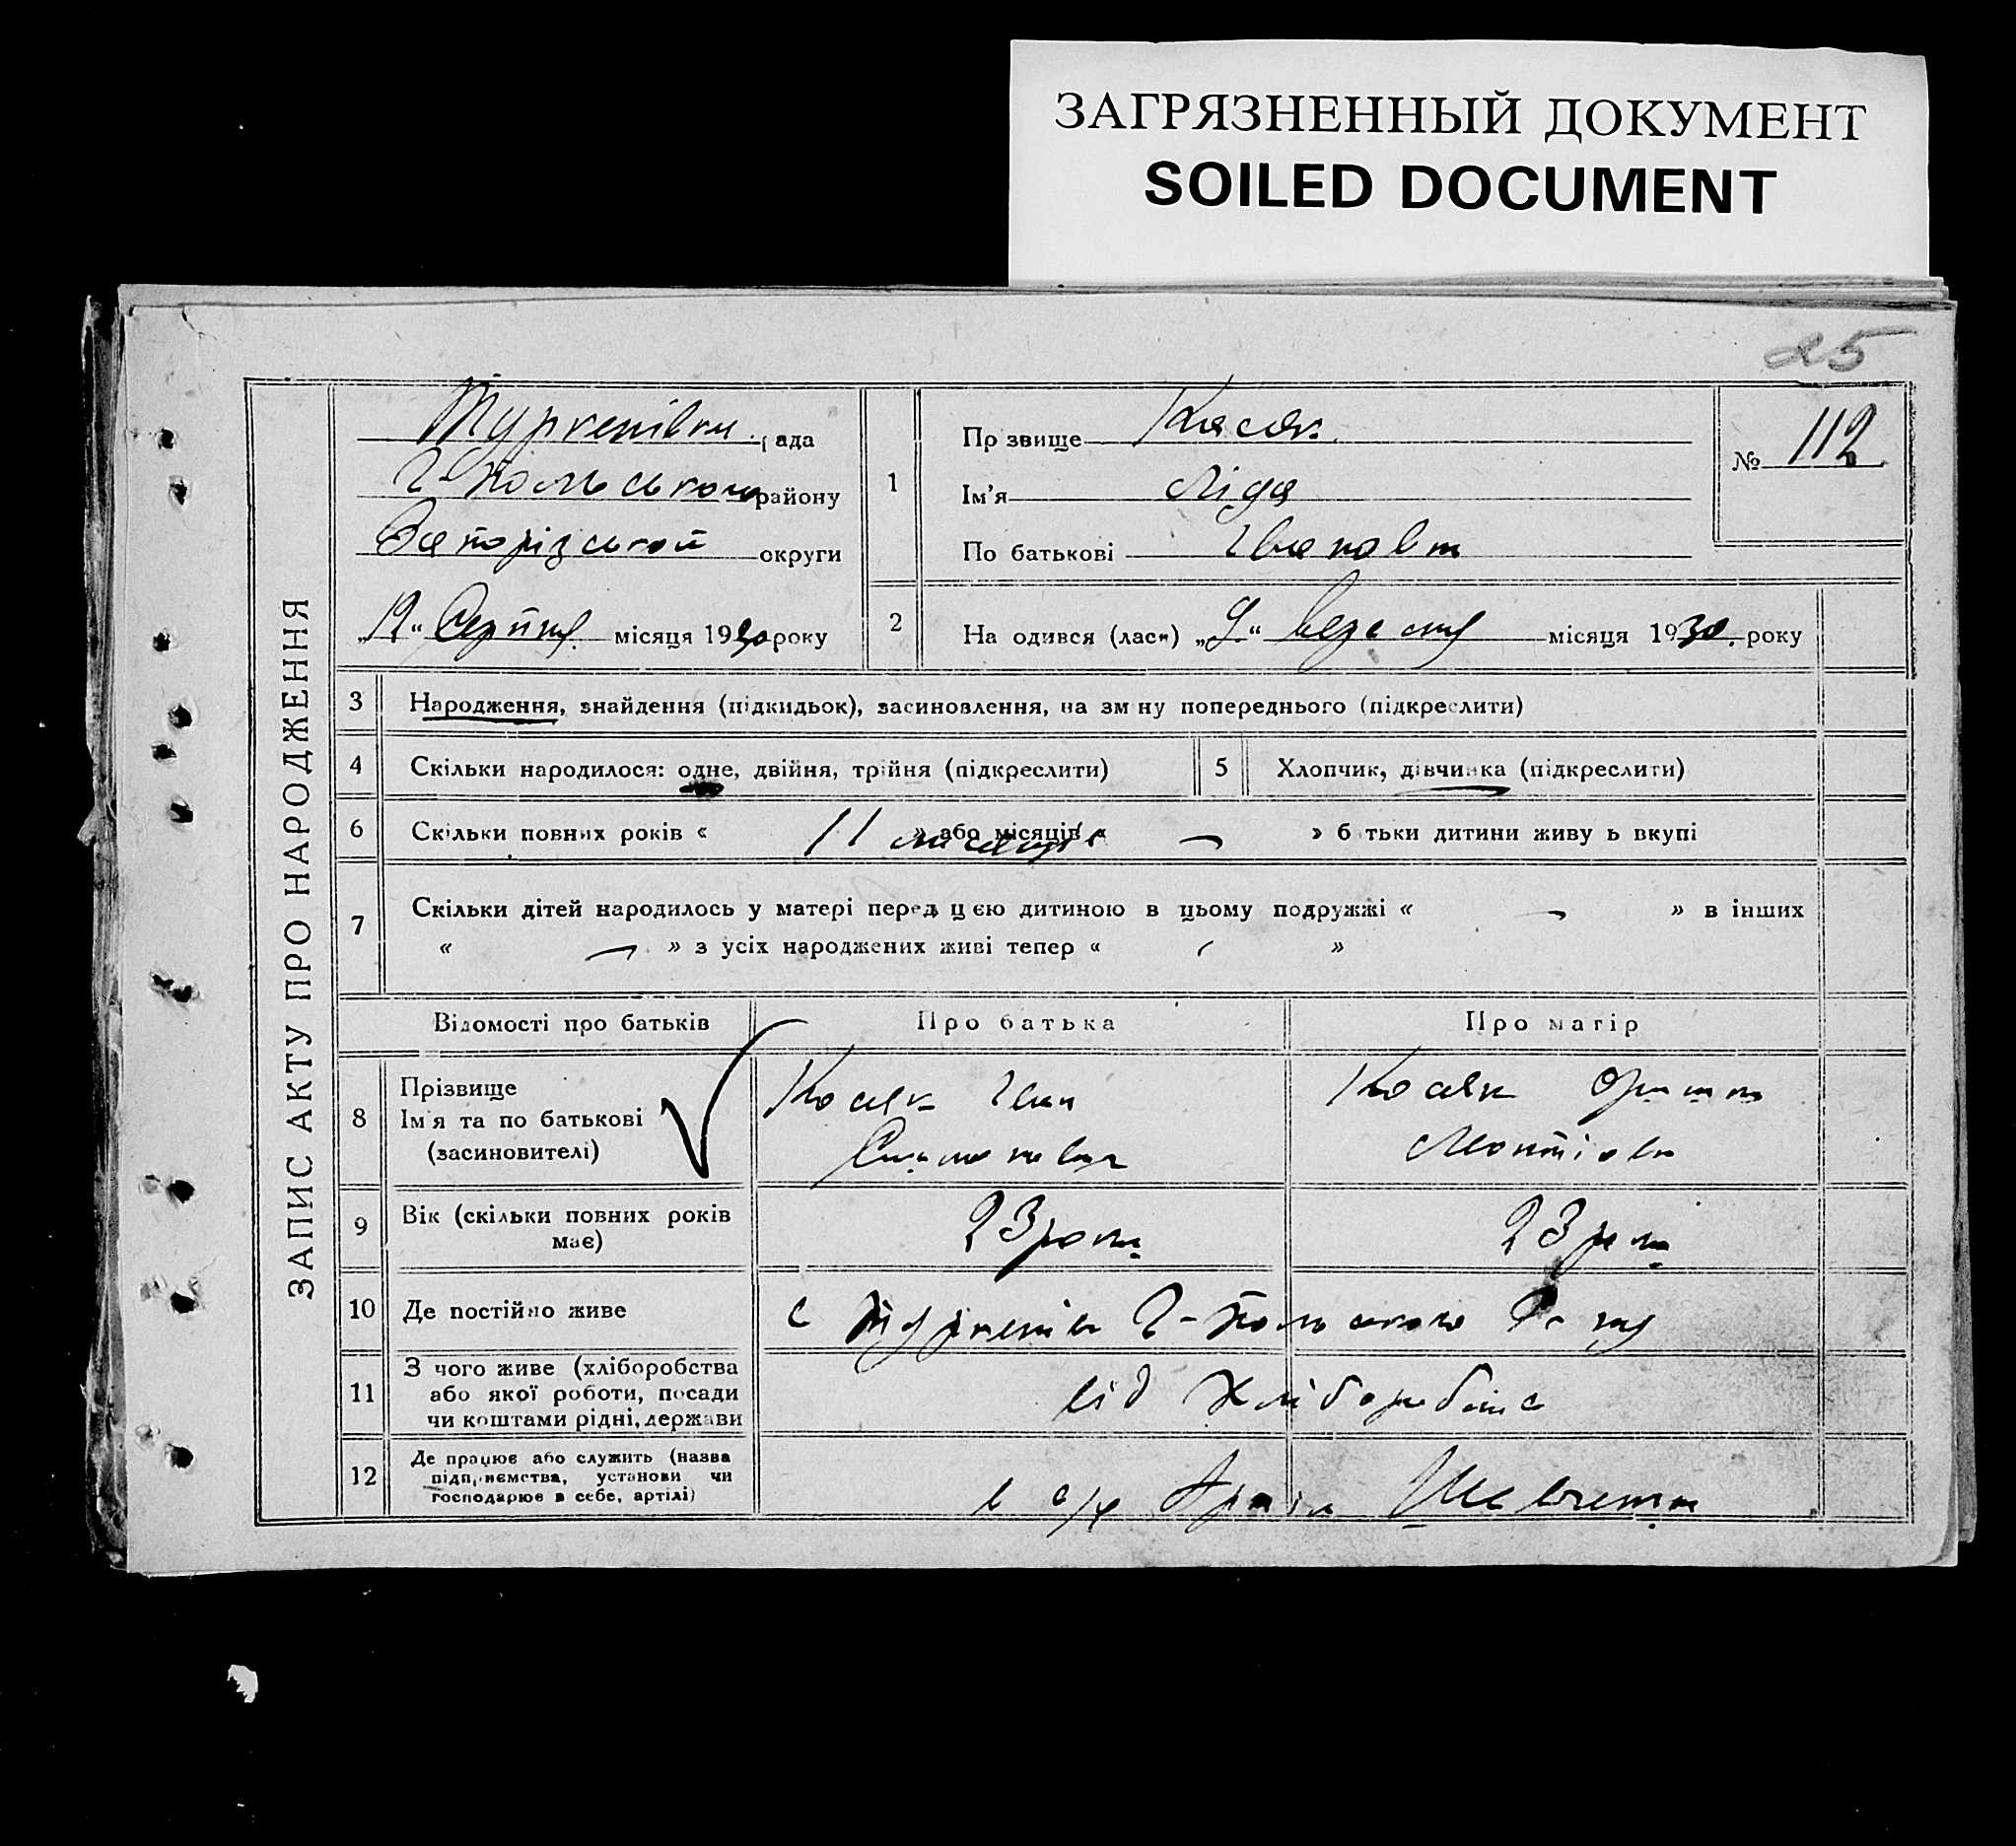 ЗАГРЯЗНЕННЫЙ ДОКУМЕНТ
SOILED DOCUMENT
25
ЗАПИС АКТУ ПРО НАРОДЖЕННЯ
Туркенівки рада
Г-Польського району
Запорізської округи
„12“ Серпня місяця 1930 року
1
Пр звище Косяк
Ім'я Ліда
По батькові Івановна
№ 112
2 На одився (лась) „9“ місяця 1930 року
3 Народження, знайдення (підкидьок), засиновлення, на зм ну попереднього (підкреслити)
4 Скільки народилося: одне, двійня, трійня (підкреслити)
5 Хлопчик, дівчинка (підкреслити)
6 Скільки повних років « 11 місяців » або місяців « — » б тьки дитини живу ь вкупі
7 Скільки дітей народилось у матері перед цією дитиною в цьому подружжі « — » в інших
« — » з усіх народжених живі тепер « »
Відомості про батьків
Про батька
Про матір
8 Прізвище
Ім'я та по батькові
(засиновителі)
Косяк Іван
Косяк Орина
9 Вік (скільки повних років
має)
23 роки
23 роки
10 Де постійно живе
с Туркенівка Г-Польського Р-ну
11 З чого живе (хліборобства
або якої роботи, посади
чи коштами рідні, держави
від Хліборобства
12 Де працює або служить (назва
підприємства, установи чи
господарює в себе, артілі)
в с/г Артіл Шевченка